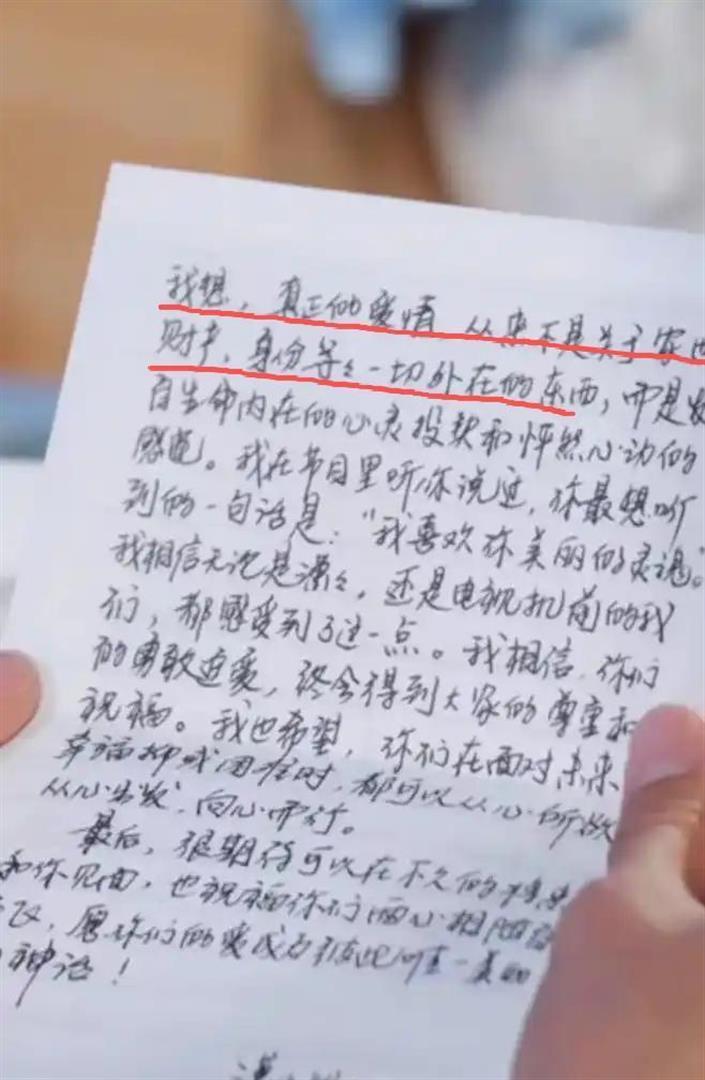 我想，真正的爱情，从来不是关于家世
财产、身份等々一切外在的东西，而是发
自生命内在的心灵投契和怦然心动的
感觉。我在节目里听你说过，你最想听
到的一句话是：“我喜欢你美丽的灵魂。”
我相信无论是漂々，还是电视机前的我
们，都感受到了这一点。我相信，你们
的勇敢追爱，终会得到大家的尊重和
祝福。我也希望，你们在面对未来
幸福抑或困难时，都可以从心所欲
从心出发，向心而行。
最后，很期待可以在不久的将来
和你见面，也祝福你们两心相
愿你们的爱成为彼此唯一
神话！